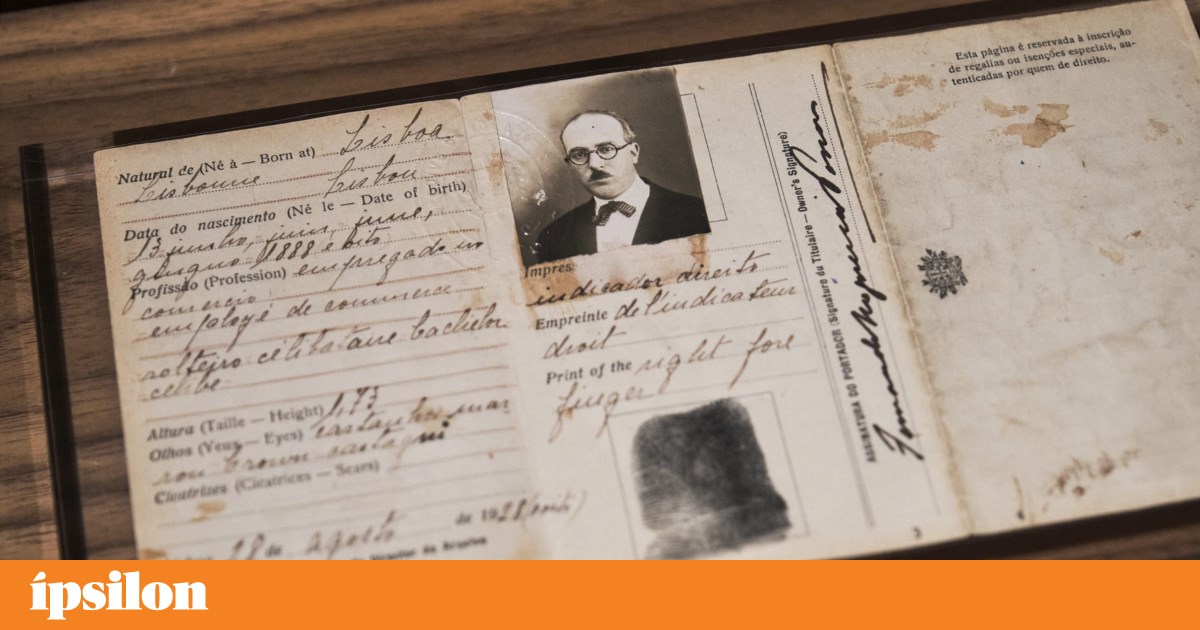 Natural de (Né à — Born at) Lisboa
Lisbonne Lisbon
Data do nascimento (Né le — Date of birth)
13 junho, juin, june,
giugno 1888 e oito
Profissão (Profession) empregado no
comercio
employé de commerce
solteiro célibataire bachelor
celibe
Altura (Taille — Height) 1,73
Olhos (Yeux — Eyes) castanhos mar
ron brown castagni
Cicatrizes (Cicatrices — Scars)
28 de Agosto de 1928 (oito)
Impres
indicador direito
Empreinte de l'indicateur
droit
Print of the right fore
finger
ASSINATURA DO PORTADOR (Signature du Titulaire — Owner's Signature)
Fernando Nogueira Pessoa
3
Esta página é reservada à inscrição
de regalias ou isenções especiais, au-
tenticadas por quem de direito.
ípsilon